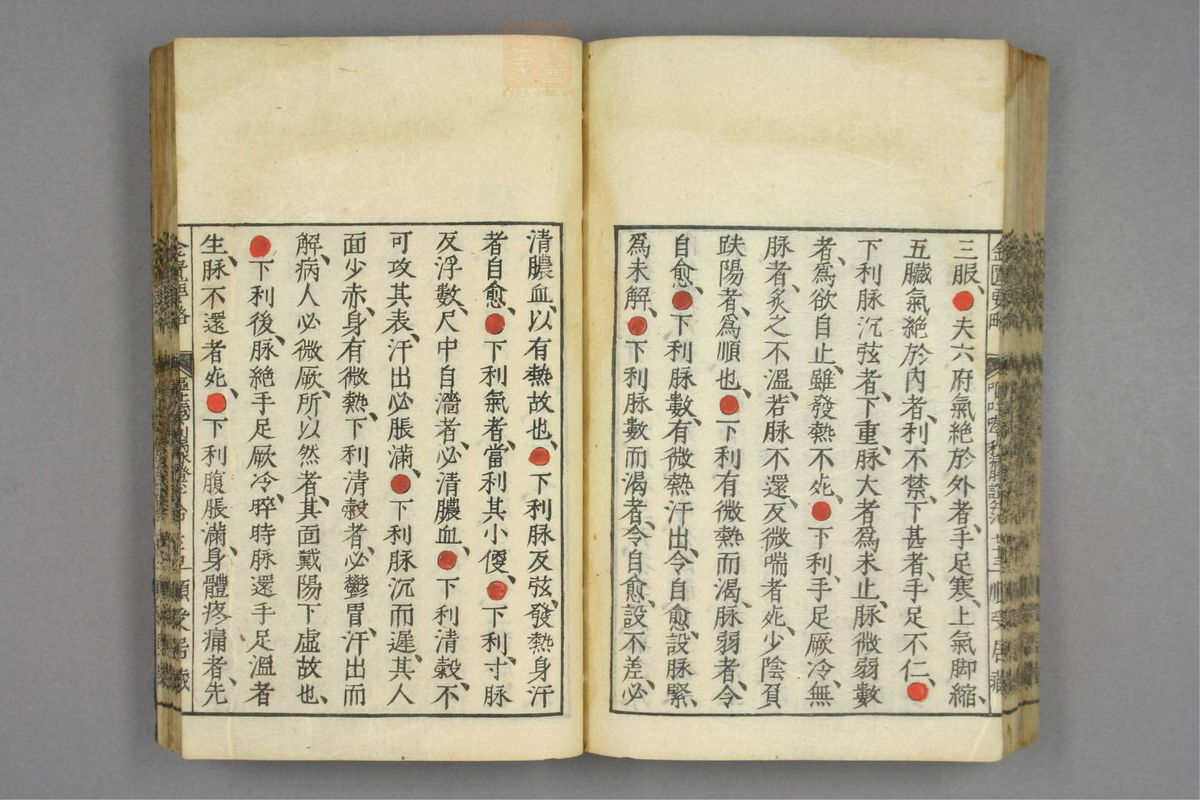 三服、●夫六府氣絶於外者、手足寒、上氣脚縮、
五臟氣絶於內者、利不禁、下甚者、手足不仁、●
下利脉沉弦者、下重、脉大者爲未止、脉微弱數
者、爲欲自止、雖發熱不死、●下利、手足厥冷、無
脉者、灸之不溫、若脉不還、反微喘者死、少陰負
趺陽者、爲順也、●下利有微熱而渴、脉弱者、令
自愈、●下利脉數、有微熱汗出、令自愈、設脉緊、
爲未解、●下利脉數而渴者、令自愈、設不差、必
清膿血、以有熱故也、●下利脉反弦、發熱身汗
者自愈、●下利氣者、當利其小便、●下利、寸脉
反浮數、尺中自濇者、必清膿血、●下利清穀、不
可攻其表、汗出必脹滿、●下利脉沉而遲、其人
面少赤、身有微熱、下利清穀者、必鬱冒、汗出而
解、病人必微厥、所以然者、其面戴陽下虛故也、
●下利後、脉絶手足厥冷、晬時脉還手足溫者
生、脉不還者死、●下利腹脹滿、身體疼痛者、先
金匱要略
順受居藏